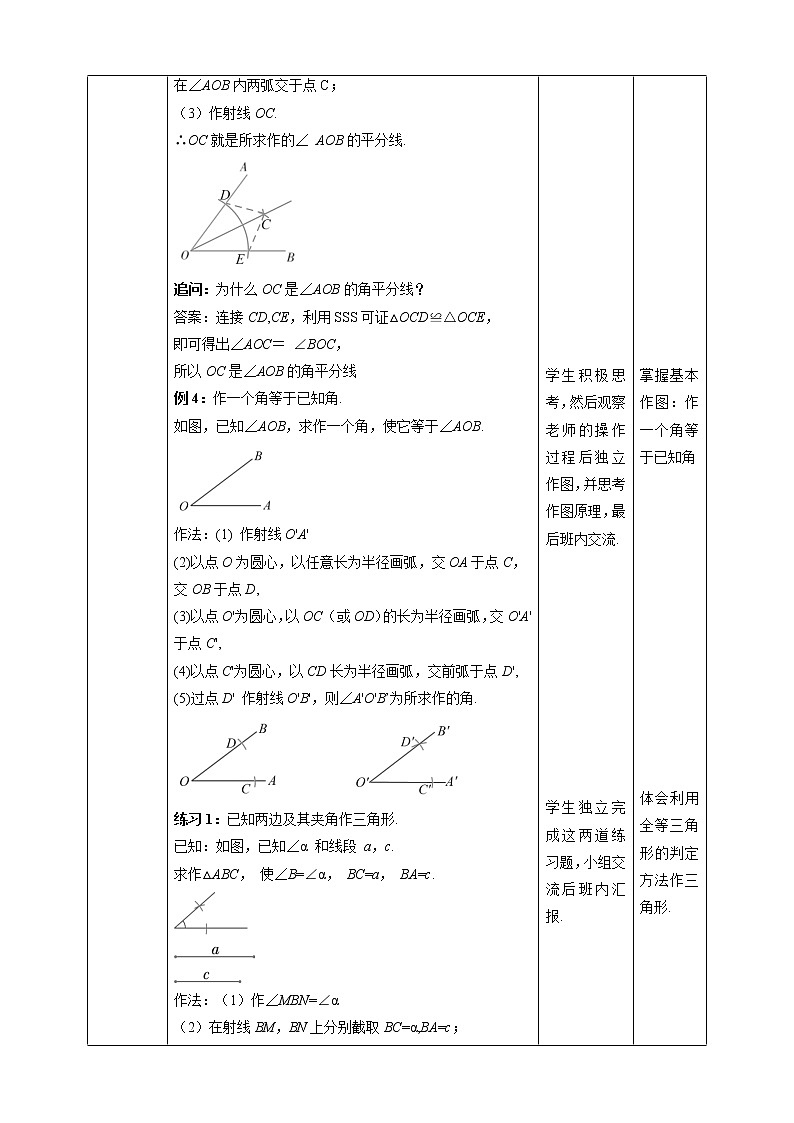 在∠AOB内两弧交于点C；
（3）作射线OC.
∴OC就是所求作的∠ AOB的平分线.
A
D
C
O
E
B
追问：为什么OC是∠AOB的角平分线？
答案：连接CD,CE，利用SSS可证△OCD≌△OCE，
即可得出∠AOC＝ ∠BOC，
所以OC是∠AOB的角平分线
例4：作一个角等于已知角.
如图，已知∠AOB，求作一个角，使它等于∠AOB.
B
O
A
作法：(1) 作射线O'A'
(2)以点O为圆心，以任意长为半径画弧，交OA于点C，
交OB于点D,
(3)以点O'为圆心，以OC（或OD）的长为半径画弧，交O'A'
于点C',
(4)以点C'为圆心，以CD长为半径画弧，交前弧于点D',
(5)过点D' 作射线O'B'，则∠A'O'B'为所求作的角.
B
D
O
C
A
B′
D′
O′
C′
A′
练习1：已知两边及其夹角作三角形.
已知：如图，已知∠α 和线段 a，c.
求作△ABC， 使∠B=∠α， BC=a， BA=c.
a
c
作法：（1）作∠MBN=∠α
（2）在射线BM，BN上分别截取BC=α,BA=c；
学生积极思
考，然后观察
老师的操作
过程后独立
作图，并思考
作图原理，最
后班内交流.
学生独立完
成这两道练
习题，小组交
流后班内汇
报.
掌握基本
作图：作
一个角等
于已知角
体会利用
全等三角
形的判定
方法作三
角形.